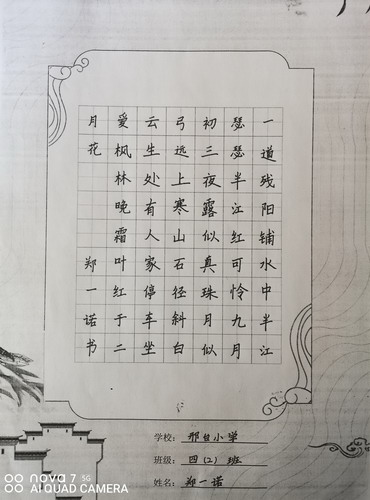 一道残阳铺水中半江
瑟瑟半江红可怜九月
初三夜露似真珠月似
弓远上寒山石径斜白
云生处有人家停车坐
爱枫林晚霜叶红于二
月花 郑一诺书
学校：邢台小学
班级：四(2)班
姓名：郑一诺
nova 7 5G
AI QUAD CAMERA